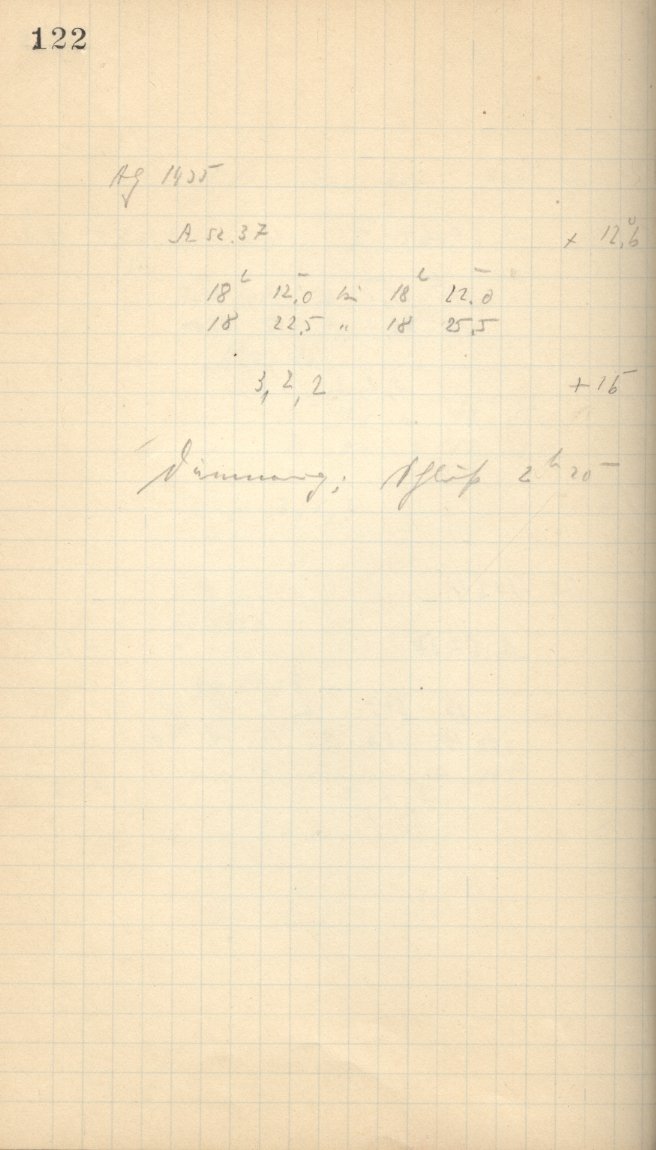 122
AG 1435
A sz. 37 + 12,6°
18ʰ 12,0 bis 18ʰ 22,0
18 22,5 " 18 25,5
3, 2, 2 + 16
Dämmerung; Schluß 2ʰ 20